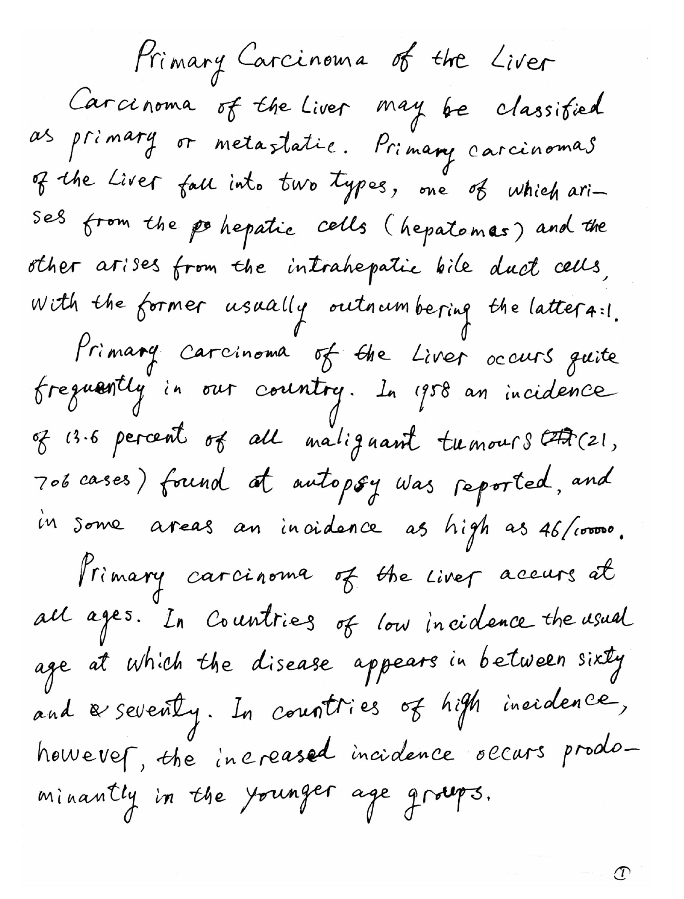 Primary Carcinoma of the Liver
Carcinoma of the Liver may be classified
as primary or metastatic. Primary carcinomas
of the Liver fall into two types, one of which ari-
ses from the hepatic cells (hepatomas) and the
other arises from the intrahepatic bile duct cells,
with the former usually outnumbering the latter 4:1.
Primary carcinoma of the Liver occurs quite
frequently in our country. In 1958 an incidence
of 13.6 percent of all malignant tumours (21,
706 cases) found at autopsy was reported, and
in some areas an incidence as high as 46/100000.
Primary carcinoma of the Liver accurs at
all ages. In Countries of low incidence the usual
age at which the disease appears in between sixty
and seventy. In countries of high incidence,
however, the increased incidence occurs prodo-
minantly in the younger age groups.
①